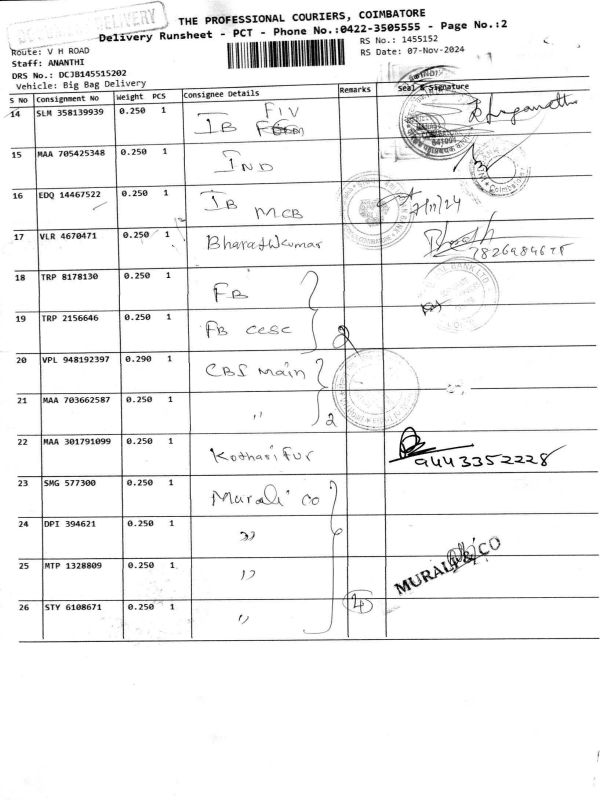 DOCUMENT DELIVERY
THE PROFESSIONAL COURIERS, COIMBATORE
Delivery Runsheet - PCT - Phone No.:0422-3505555 - Page No.:2
Route: V H ROAD
RS No.: 1455152
Staff: ANANTHI
RS Date: 07-Nov-2024
DRS No.: DCJB145515202
Vehicle: Big Bag Delivery
S No Consignment No Weight PCS Consignee Details Remarks Seal & Signature
14 SLM 358139939 0.250 1 IB FIV
15 MAA 705425348 0.250 1 IND
16 EDQ 14467522 0.250 1 IB MCB 7/11/24
17 VLR 4670471 0.250 1 Bharathkumar
18 TRP 8178130 0.250 1 FB
19 TRP 2156646 0.250 1 FB cesc 2
20 VPL 948192397 0.290 1 CBS main
21 MAA 703662587 0.250 1 " 2
22 MAA 301791099 0.250 1 Kothari fur 9443352228
23 SMG 577300 0.250 1 Murali co
24 DPI 394621 0.250 1 "
25 MTP 1328809 0.250 1 " MURALI & CO
26 STY 6108671 0.250 1 " 4